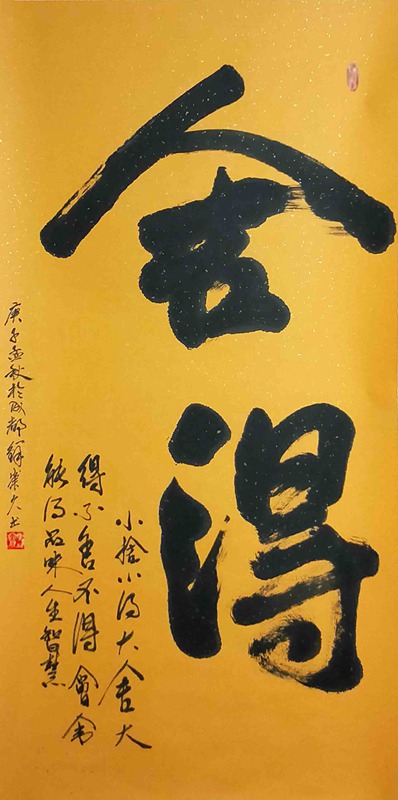 舍得
小捨小得大舍大
得不舍不得會舍
能得品味人生智慧
庚子孟秋於成都